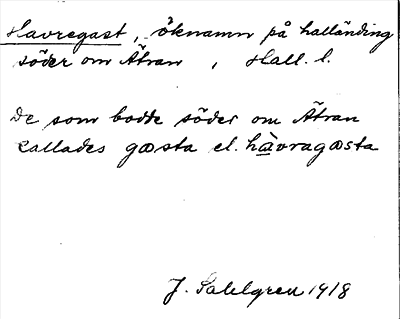 Havregast, öknamn på halländing
söder om Ätran, Hall. l.
De som bodde söder om Ätran
kallades gæsta el. hàvragæsta
J. Sahlgren 1918